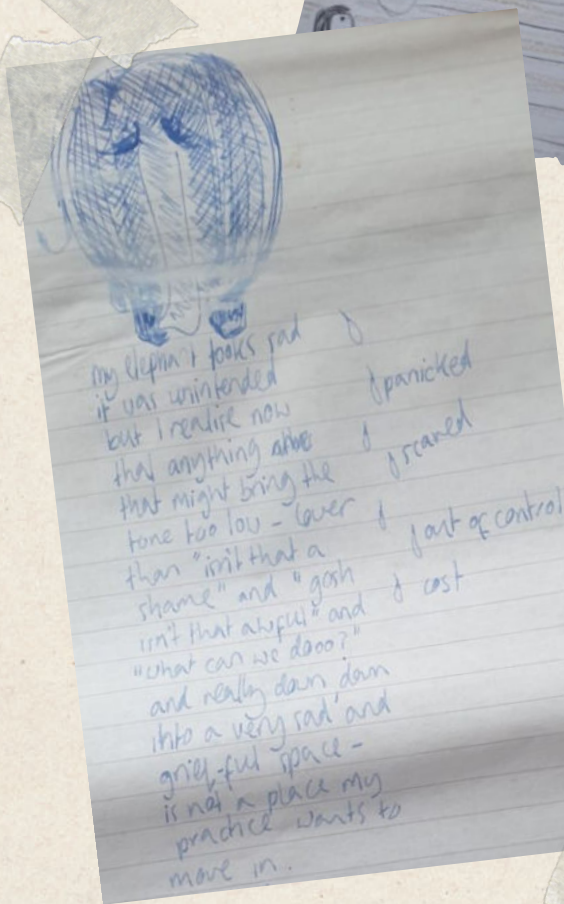 my elephant looks sad
it was unintended
but I realise now
that anything
that might bring the
tone too low - lower
than "isn't that a
shame" and "gosh
isn't that awful" and
"what can we dooo?"
and really down down
into a very sad and
grief-ful space -
is not a place my
practice wants to
move in.
panicked
scared
out of control
cost